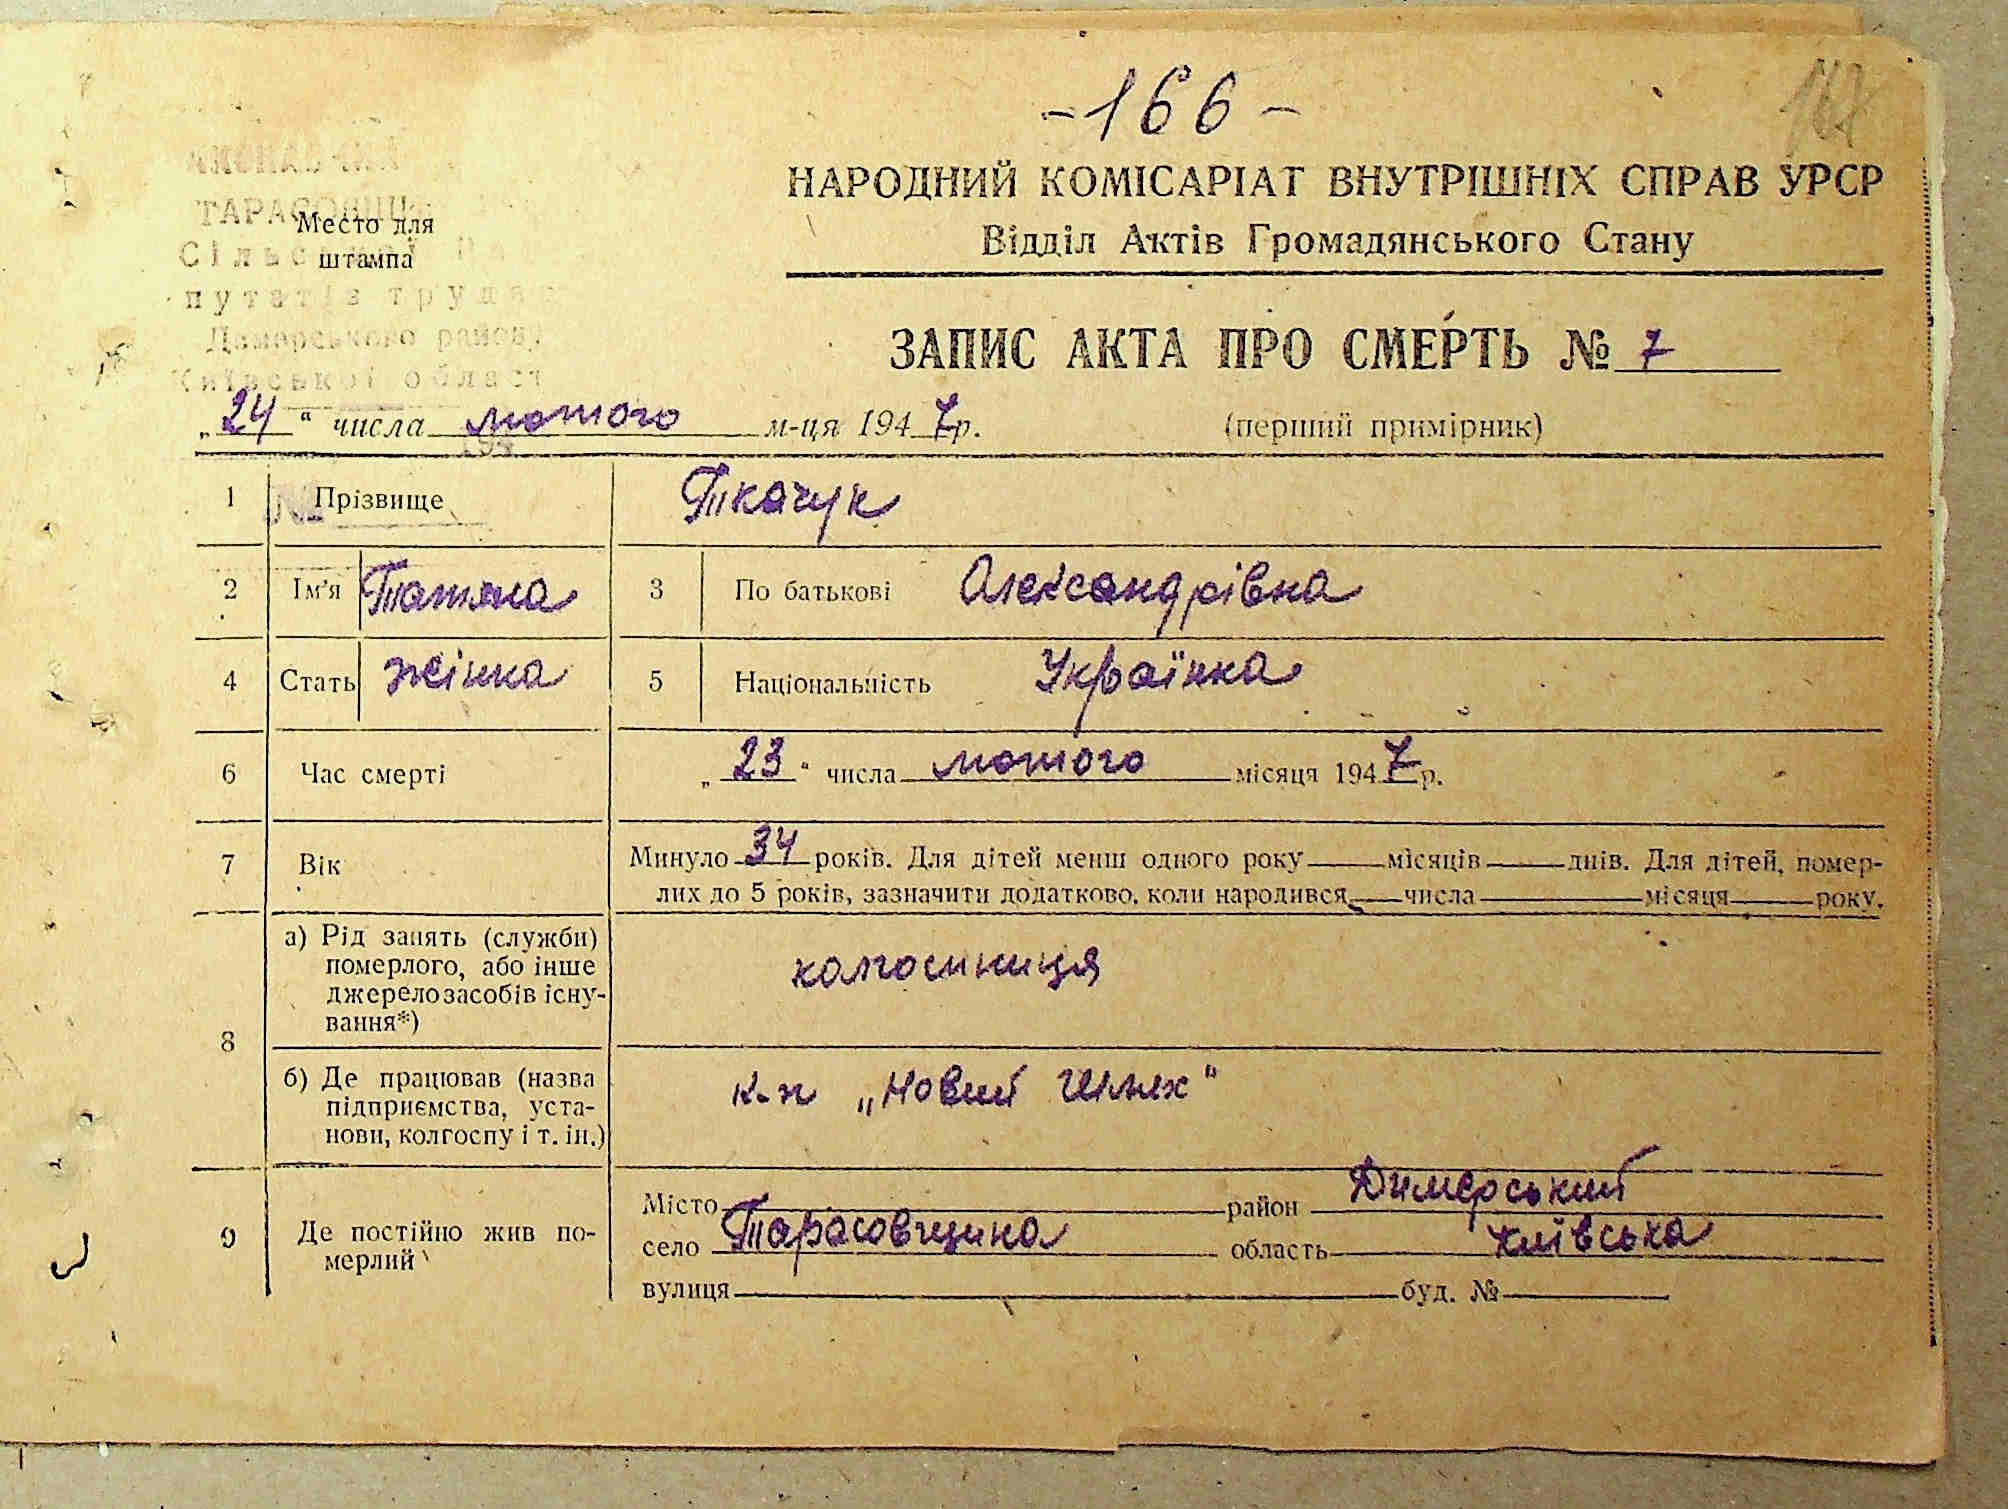 -166-
167
НАРОДНИЙ КОМІСАРІАТ ВНУТРІШНІХ СПРАВ УРСР
Відділ Актів Громадянського Стану
Место для
штампа
ТАРАСОВЩ
Сільської
путатів труд
Димерського району
Київської област
ЗАПИС АКТА ПРО СМЕРТЬ № 7
„24“ числа лютого м-ця 1947р. (перший примірник)
1 Прізвище Ткачук
2 Ім'я Татяна 3 По батькові Олександрівна
4 Стать жінка 5 Національність Українка
6 Час смерті „23“ числа лютого місяця 1947р.
7 Вік Минуло 34 років. Для дітей менш одного року местами місяців днів. Для дітей, помер-
лих до 5 років, зазначити додатково, коли народився числа місяця року.
8 а) Рід занять (служби)
померлого, або інше
джерело засобів існу-
вання*)
колгоспниця
б) Де працював (назва
підприємства, уста-
нови, колгоспу і т. ін.)
к-п „Новий Шлях"
9 Де постійно жив по-
мерлий
Місто район Димерський
село Тарасовщина область Київська
вулиця буд. №